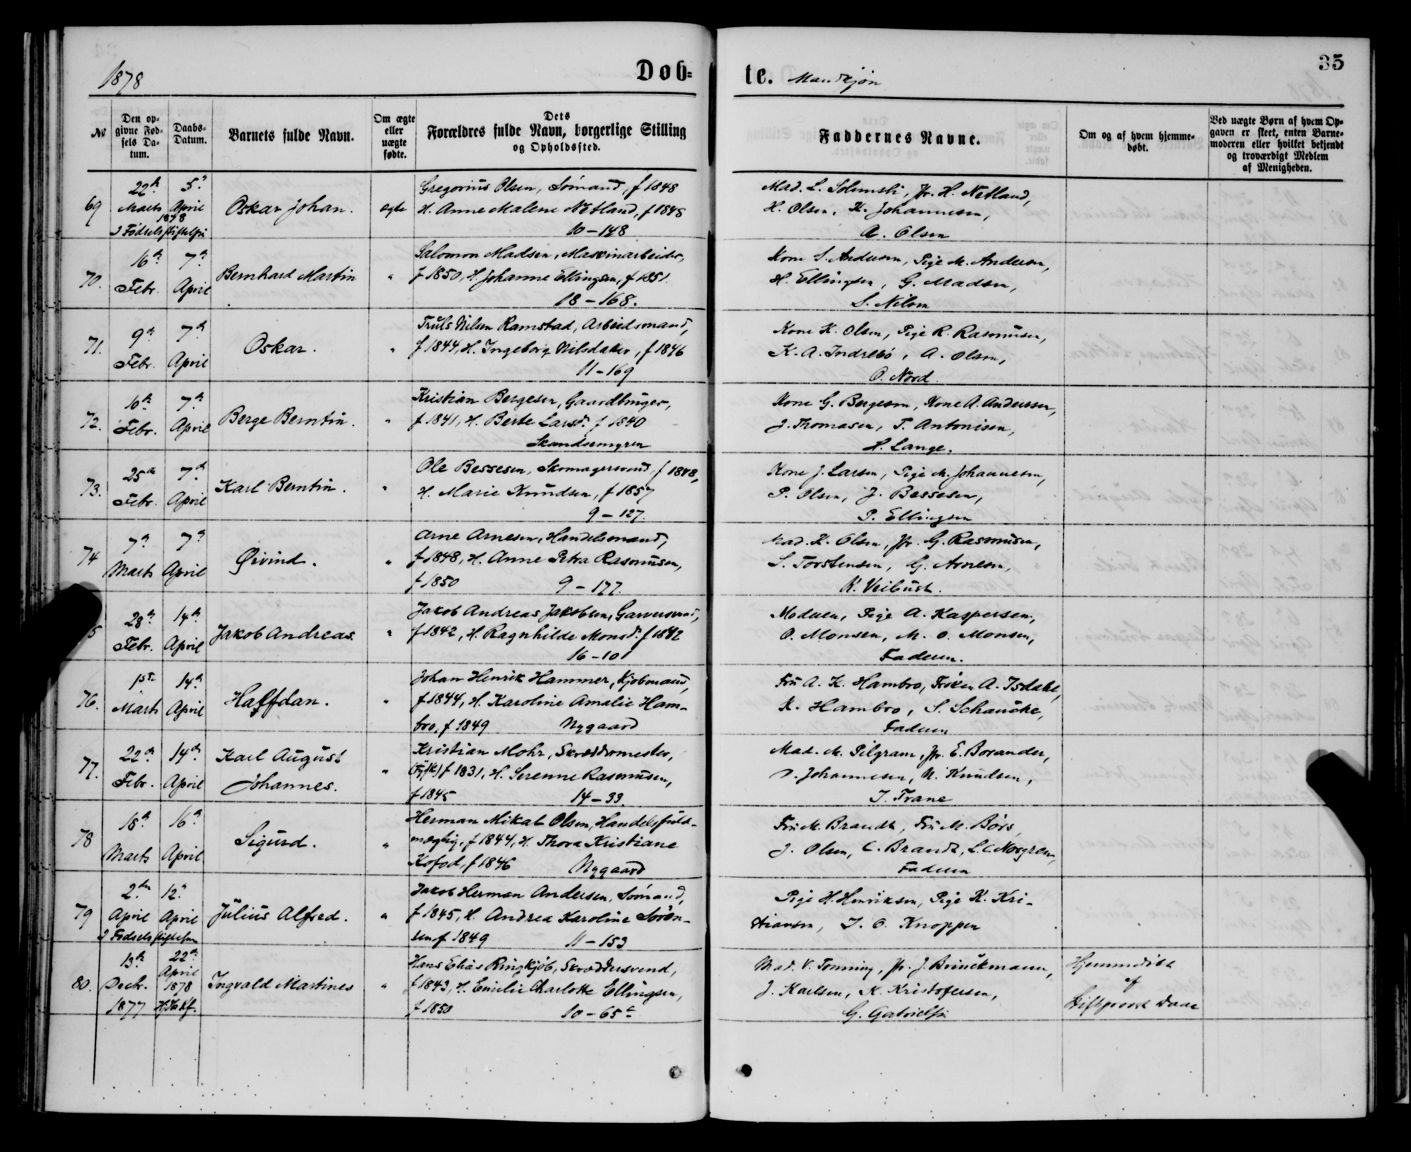 1878
Døb=
te. Mandkjøn
35
№
Den op-
givne Fød-
sels Da-
tum.
Daabs-
Datum.
Barnets fulde Navn.
Om ægte
eller
uægte
fødte.
Dets
Forældres fulde Navn, borgerlige Stilling
og Opholdssted.
Faddernes Navne.
Om og af hvem hjemme-
døbt.
Ved uægte Børn af hvem Op-
gaven er skeet, enten Barne-
moderen eller hvilket bekjendt
og troværdigt Medlem
af Menigheden.
69 22de Marts 5te April 1878 Oskar Johan. ægte
I Fødselsstiftelsen
Gregorius Olsen, Sømand, f 1848
H. Anne Malene Netland, f 1848
10-148
Mad. L. Solemski, Jfr. H. Netland,
H. Olsen, K. Johannesen,
A. Olsen
70. 16de Febr. 7de April Bernhard Martin "
Salomon Madsen, Maskinarbeider,
f 1850, H. Johanne Ellingsen, f 1851
18-168.
Kone S. Andersen, Pige M. Andersen,
H. Ellingsen, G. Madsen,
S. Nilsen
71. 9de Febr. 7de April Oskar. "
Truls Nilsen Ramstad, Arbeidsmand,
f 1844, H. Ingeborg Nilsdatter, f 1846
11-169
Kone K. Olsen, Pige R. Rasmussen,
K. A. Indrebø, A. Olsen,
O. Nord
72. 10de Febr. 7de April Berge Berntin. "
Kristian Bergesen, Gaardbruger,
f 1841, H. Berte Larsdr. f 1840
Skandsemyren
Kone G. Bergesen, Kone A. Andersen,
J. Thomasen, T. Antonisen,
L. Lange.
73. 25de Febr. 7de April Karl Berntin. "
Ole Bessesen, Skomagersvend f 1848,
H. Marie Knudsen, f 1857
9-127.
Kone J. Larsen, Pige M. Johannesen,
P. Olsen, J. Bessesen,
P. Ellingsen
74 7de Marts 7de April Øivind. "
Arne Arnesen, Handelsmand,
f 1848, H. Anne Petra Rasmussen,
f 1850 9-177.
Mad. K. Olsen, Jfr. G. Rasmussen,
S. Torstensen, G. Arnesen,
K. Veibust.
5 28de Febr. 14de April Jakob Andreas "
Jakob Andreas Jakobsen, Garversvend,
f 1842, H. Ragnhilde Monsdr. f 1842
16-10
Moderen, Pige A. Kaspersen,
O. Monsen, M. O. Monsen,
Faderen.
76. 1ste Marts 14de April Halfdan. "
Johan Henrik Hammer, Kjøbmand,
f 1844, H. Karoline Amalie Ham-
bro, f 1849 Nygaard
Fru A. K. Hambro, Frøken A. Isdahl,
K. Hambro, S. Schanche,
Faderen
77. 22de Febr. 14de April Karl August
Johannes. "
Kristian Mohr, Skræddermester,
(Tysk) f 1831, H. Serenne Rasmussen,
f 1845 14-33
Mad. M. Pilgram, Jfr. E. Borander,
Johannesen, N. Knudsen,
J. Trane
78 18de Marts 16de April Sigurd. "
Herman Mikal Olsen, Handelsfuld-
mægtig, f 1844, H. Thora Kristiane
Kofod, f 1846 Nygaard
Fru M. Brandt, Fru M. Børs,
J. Olsen, C. Brandt, L. C. Norgreen,
Faderen
79 2den April 12te April Julius Alfred. "
I Fødselsstiftelsen
Jakob Herman Andersen, Sømand,
f 1845, H. Andrea Karoline Søren-
sen f 1849 11-153
Pige H. Henriksen, Pige K. Kri-
stiansen, J. O. Knoppen
80. 13de Decb. 1877 22de April 1878 Ingvald Martines "
Hans Elias Ringkjøb, Skræddersvend,
f 1843, H. Emilie Charlotte Ellingsen,
f 1850 10-65
Mad. V. Tonning, Jfr. J. Brinckmann,
J. Karlsen, K. Kristofersen,
G. Gabrielsen
Hjemmedøbt
af
Stiftsprovst Daae